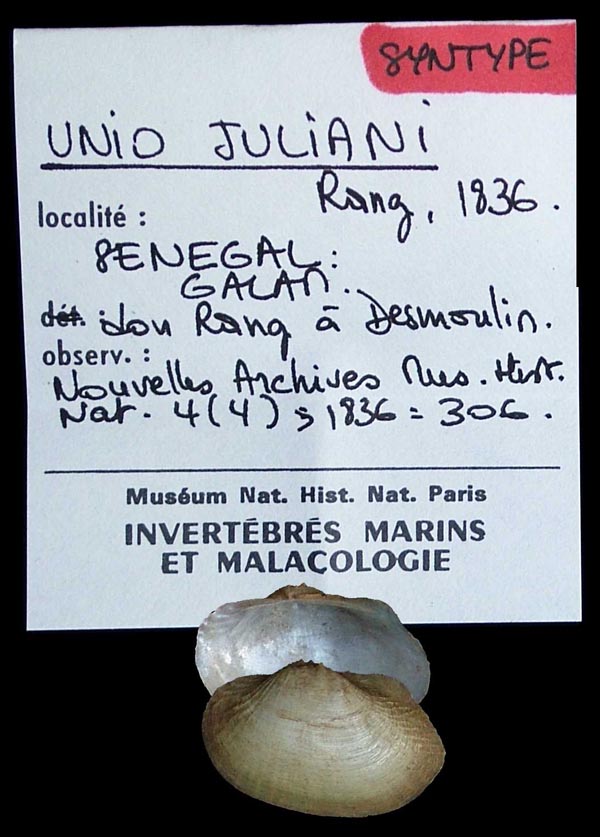 SYNTYPE
UNIO JULIANI
Rang, 1836.
localité :
SENEGAL:
GALAM.
dét. don Rang à Desmoulin.
observ. :
Nouvelles Archives Mus. Hist.
Nat. 4(4); 1836: 306.
Muséum Nat. Hist. Nat. Paris
INVERTÉBRÉS MARINS
ET MALACOLOGIE